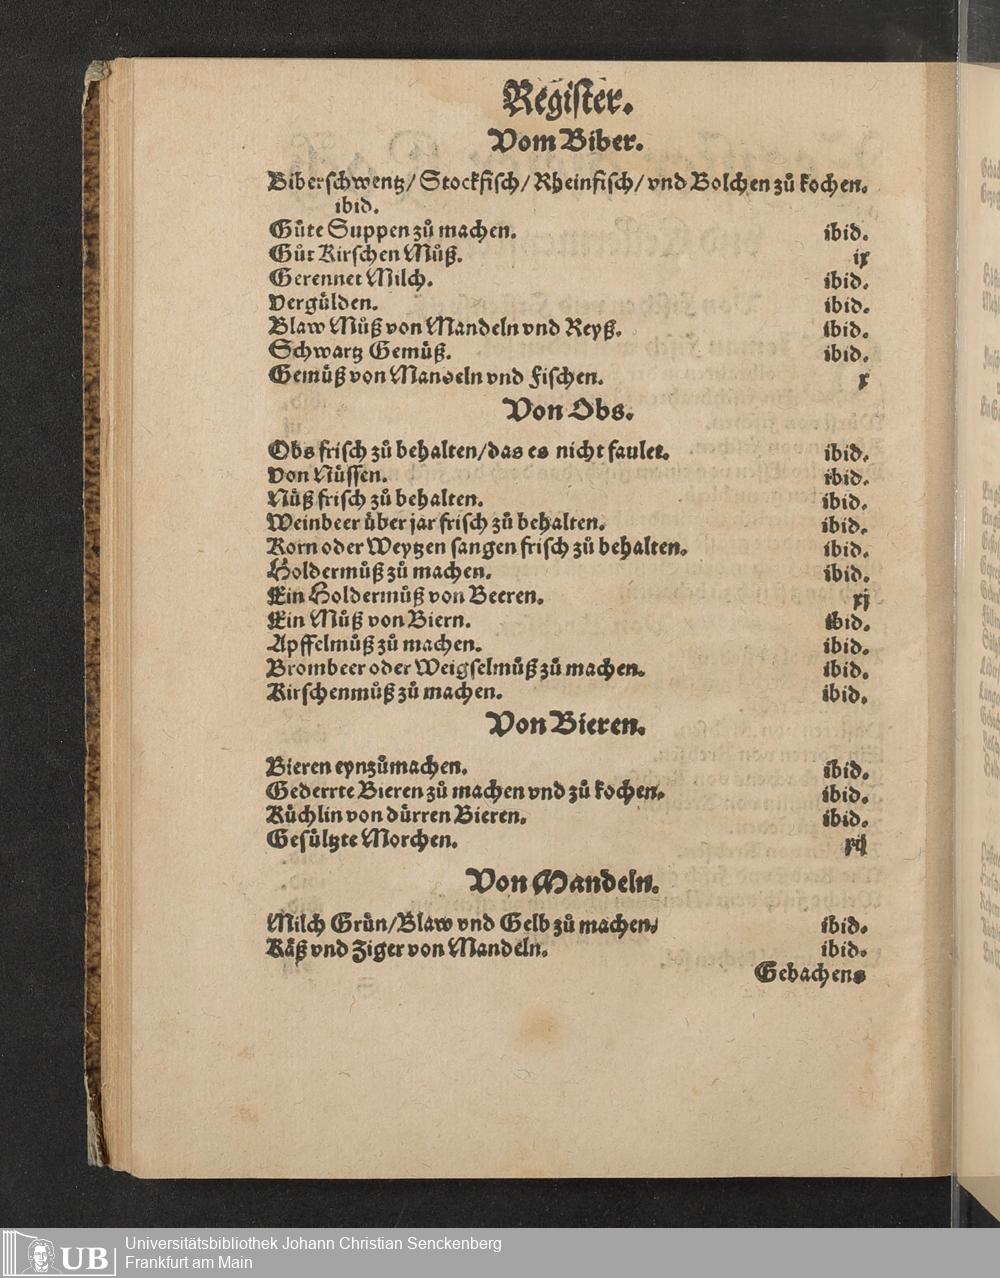 Register.
Vom Biber.
Biberschwentz/ Stockfisch/ Rheinfisch/ vnd Bolchen zů kochen.
ibid.
Gůte Suppen zů machen. ibid.
Gůt Kirschen Můß. ix
Gerennet Milch. ibid.
Vergülden. ibid.
Blaw Můß von Mandeln vnd Reyß. ibid.
Schwartz Gemůß. ibid.
Gemůß von Mandeln vnd Fischen. x
Von Obs.
Obs frisch zů behalten/das es nicht faulet. ibid.
Von Nüssen. ibid.
Nüß frisch zů behalten. ibid.
Weinbeer über jar frisch zů behalten. ibid.
Korn oder Weytzen sangen frisch zů behalten. ibid.
Holdermůß zů machen. ibid.
Ein Holdermůß von Beeren. xj
Ein Můß von Biern. ibid.
Apffelmůß zů machen. ibid.
Brombeer oder Weigselmůß zů machen. ibid.
Kirschenmůß zů machen. ibid.
Von Bieren.
Bieren eynzůmachen. ibid.
Gederrte Bieren zů machen vnd zů kochen. ibid.
Küchlin von dürren Bieren. ibid.
Gesültzte Morchen. xij
Von Mandeln.
Milch Grün/Blaw vnd Gelb zů machen. ibid.
Käß vnd Ziger von Mandeln. ibid.
Gebachens
UB
Universitätsbibliothek Johann Christian Senckenberg
Frankfurt am Main